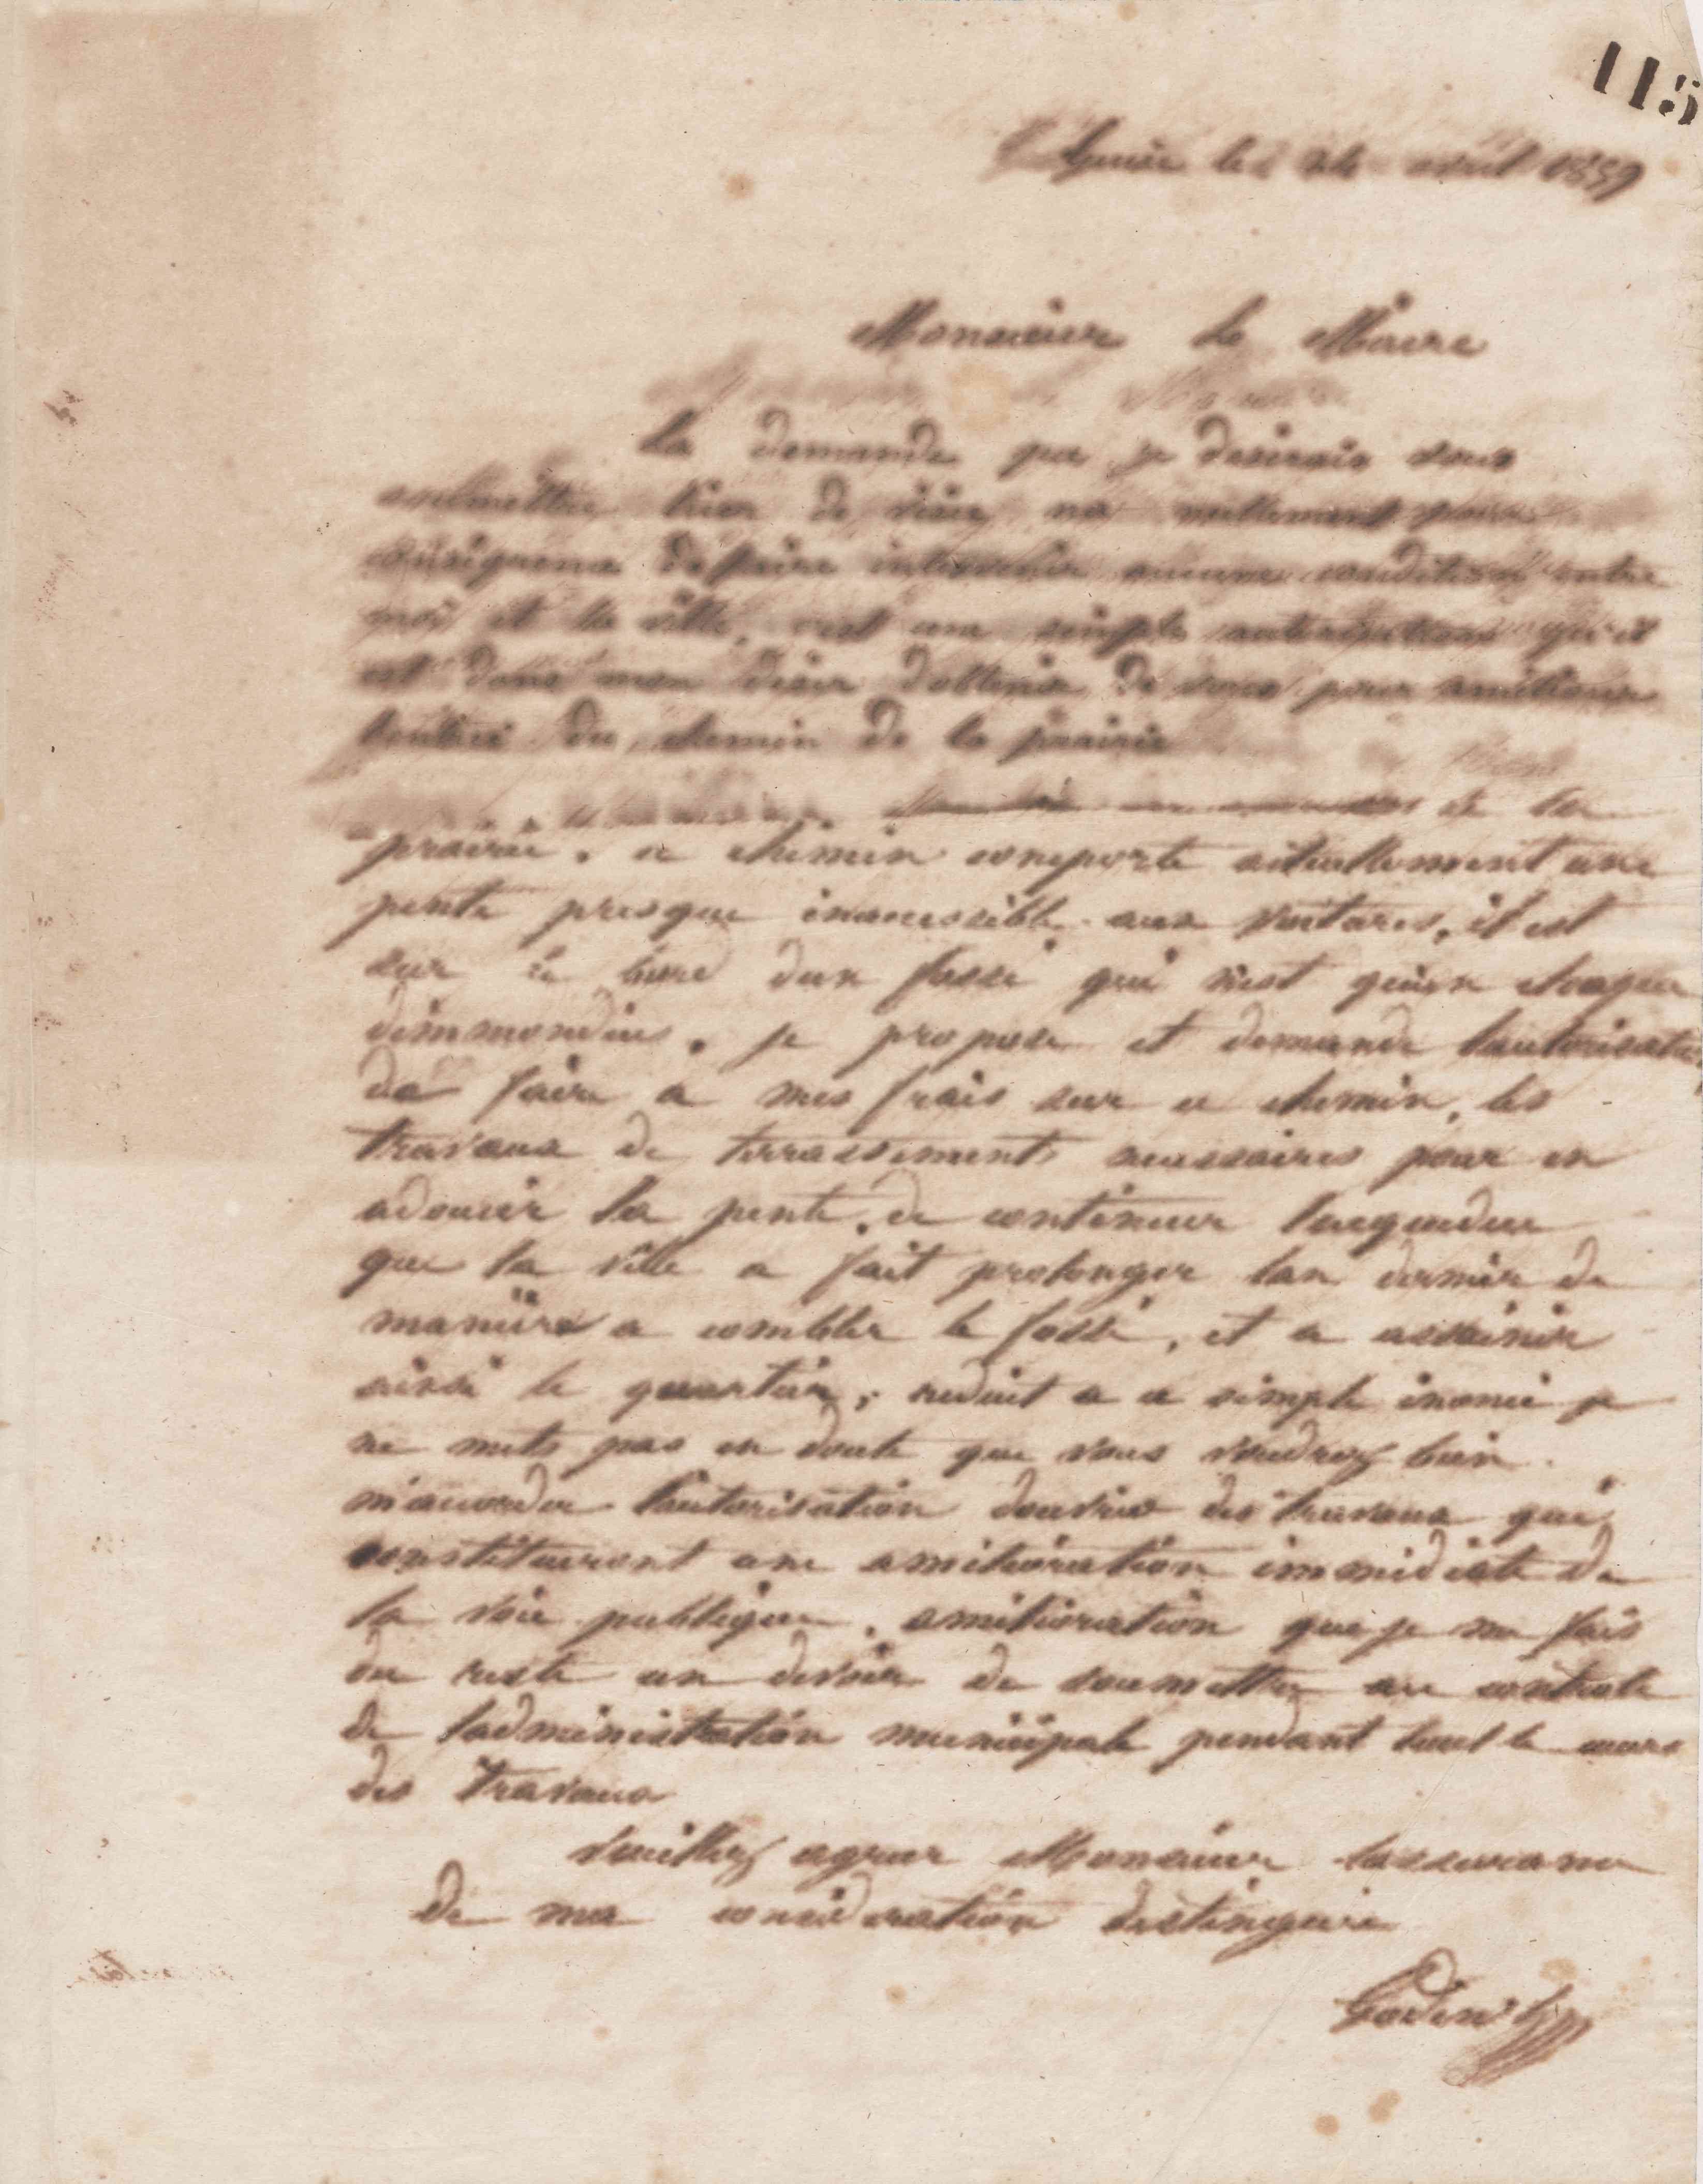 115
le 24 avril 1859
Monsieur le Maire
la demande que je desirais vous
soumettre bien de na nullement pour
de faire intervenir aucune condition entre
moi et la ville, cest une simple autorisation qu'il
est dans mon désir dobtenir de vous pour améliorer
du chemin de la prairie
de la
prairie. ce chemin comporte actuellement une
pente presque inaccessible aux voitures, il est
sur le bord dun fossé qui n'est qu'un cloaque
dimmondices. je propose et demande lautorisation
de faire a mes frais sur ce chemin, les
travaux de terrassements necessaires pour en
adoucir la pente, de continuer laqueduc
que la ville a fait prolonger lan dernier de
manière a combler le fossé, et a assainir
ainsi le quartier; reduit a ce simple énoncé je
ne mets pas en doute que vous voudrez bien
m'accorder lautorisation douvrir des travaux qui
constitueront une amélioration immédiate de
la voie publique, amélioration que je me fais
du reste un devoir de soumettre au controle
de ladministration municipale pendant tout le cours
des travaux
Veuillez agreer Monsieur lassurance
de ma considération distinguée
Godin